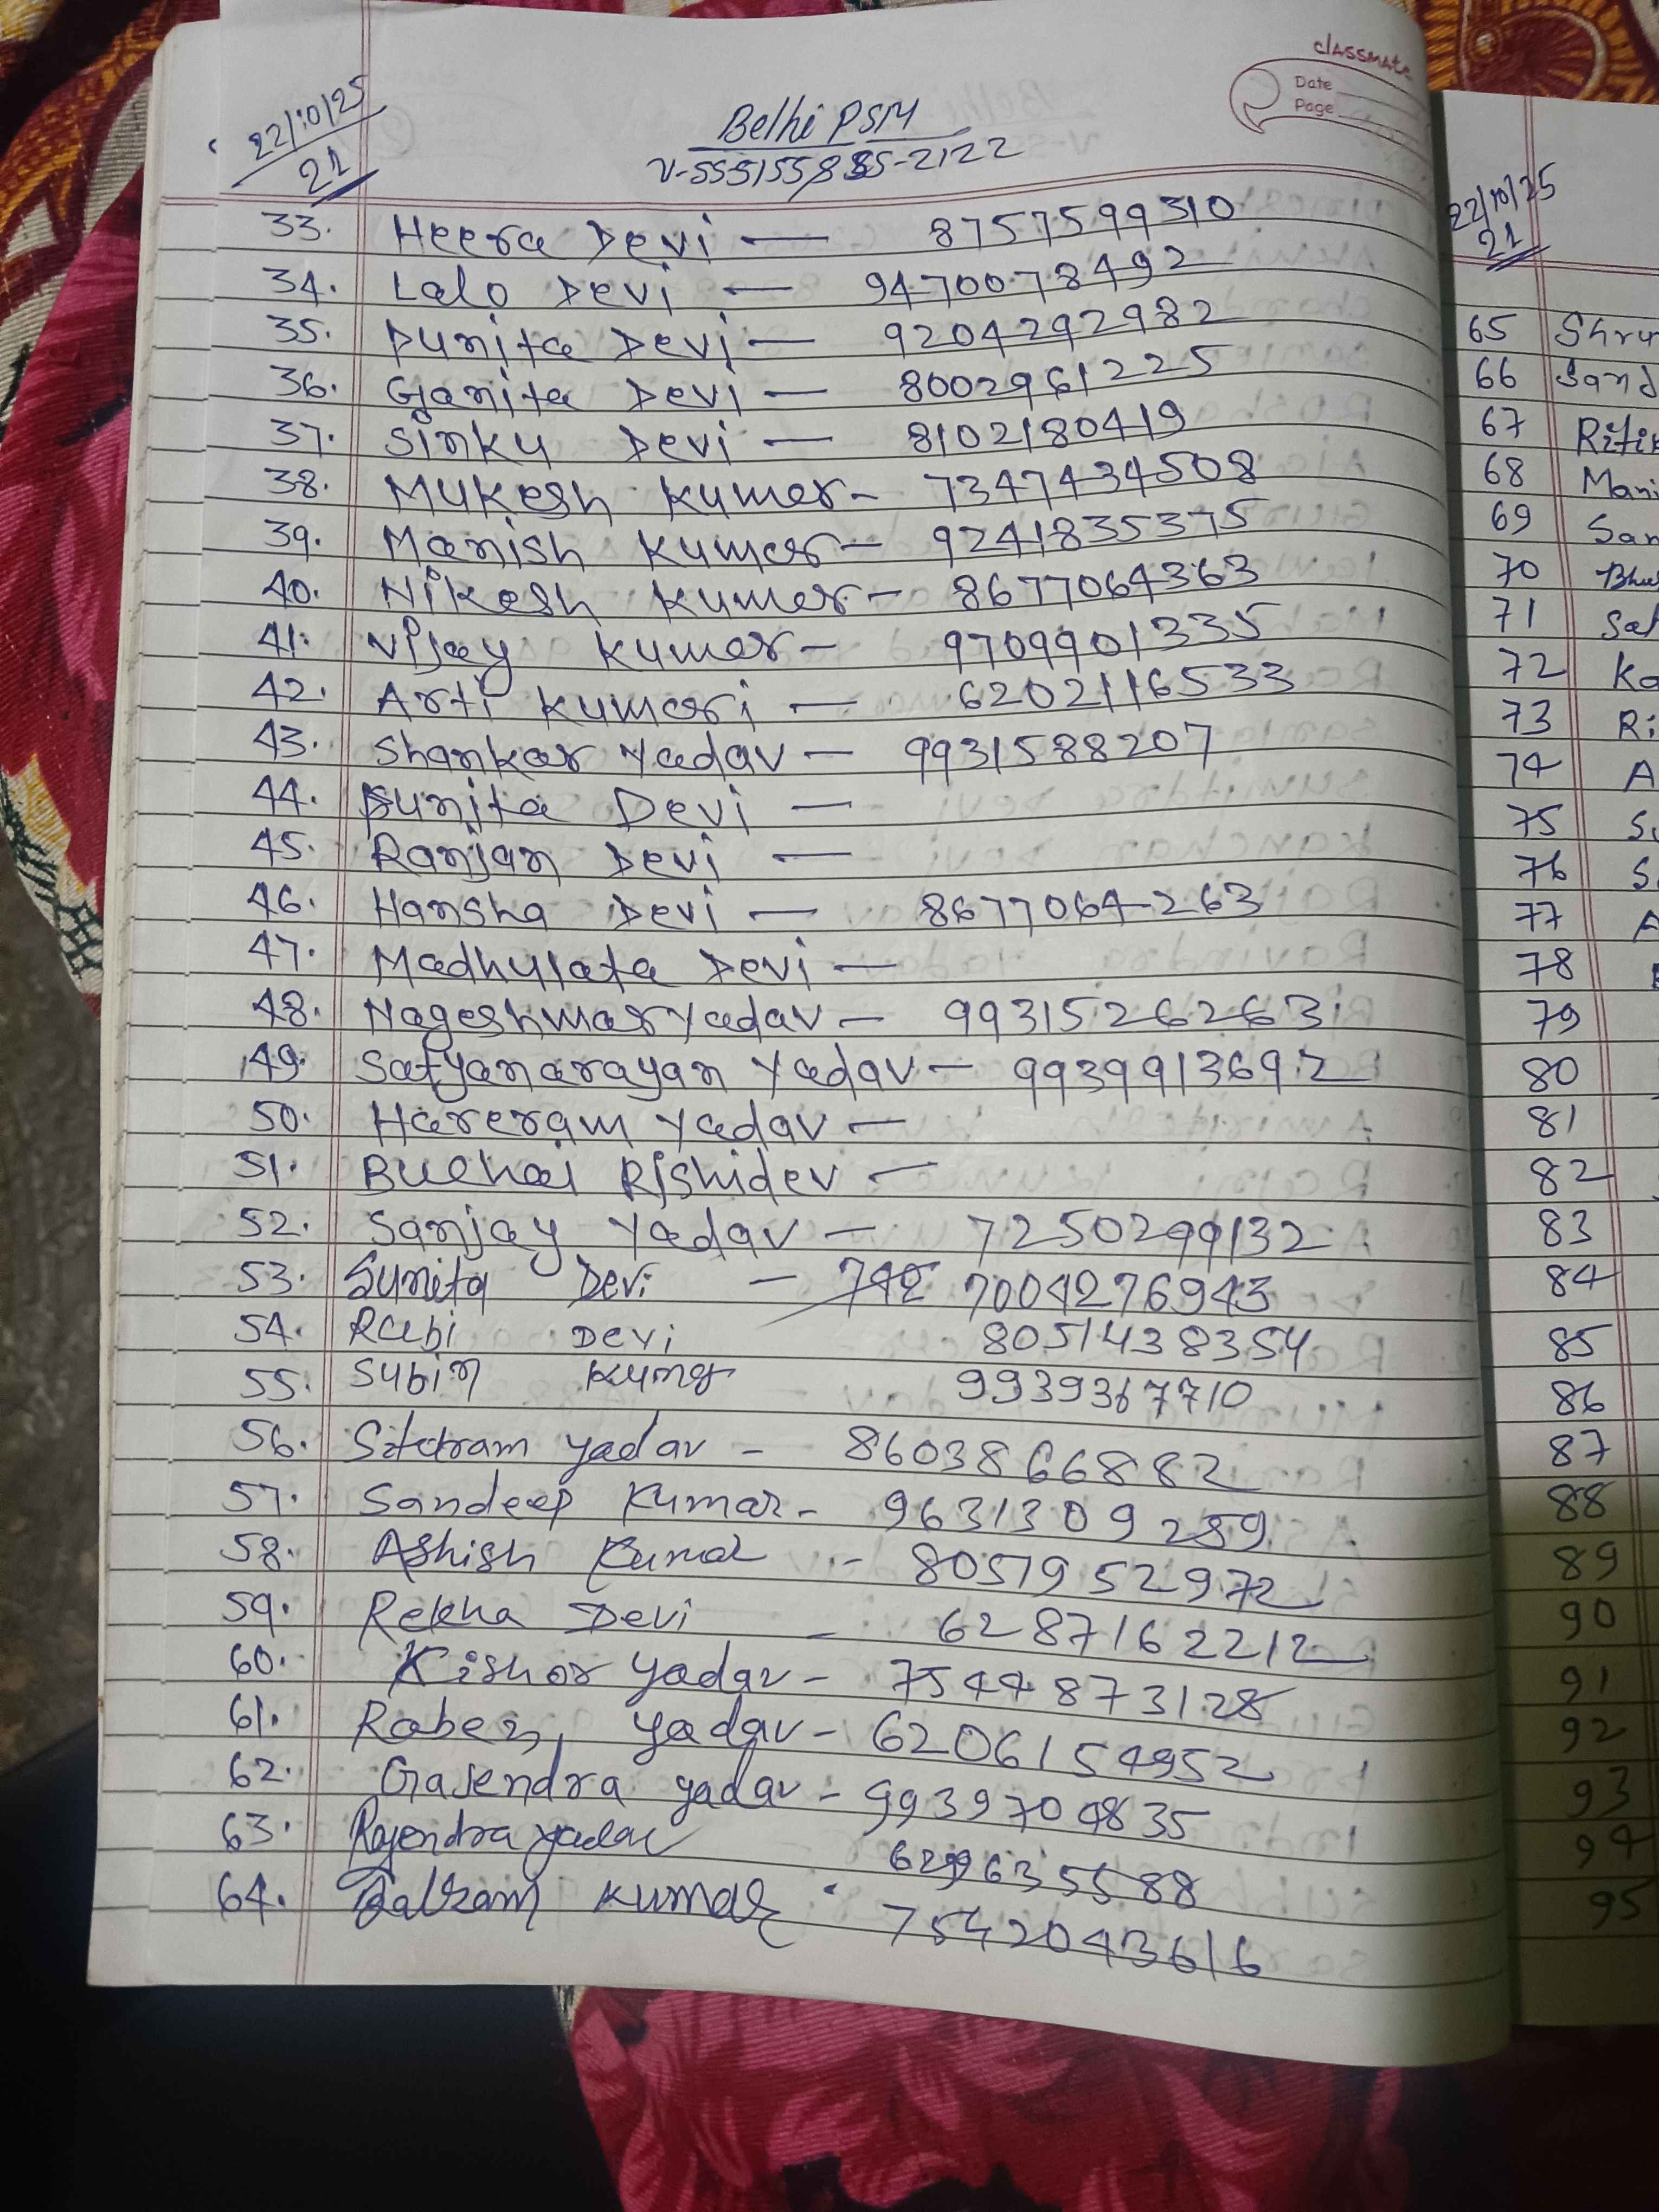 classmate
Date
Page
22/10/25
21
Belhi PSM
33. Heera Devi — 8757599310
34. Lalo Devi — 9470078492
35. Punita Devi — 9204292982
36. Ganita Devi — 8002961225
37. Sinku Devi — 8102180419
38. Mukesh Kumar - 7347434508
39. Manish Kumar — 9241835375
40. Nikesh Kumar - 8677064363
41. Vijay Kumar - 9709901335
42. Arti Kumari — 6202116533
43. Shankar Yadav — 9931588207
44. Sunita Devi —
45. Ranjan Devi —
46. Hansha Devi — 8677064263
47. Madhulata Devi —
48. Nageshwar Yadav — 9931526263
49. Satyanarayan Yadav — 9939913692
50. Hareram Yadav —
51. Rishidev —
52. Sanjay Yadav — 7250299132
53. Sunita Devi — 7004276943
54. Devi 8051438354
55. Subin Kumar 9939367710
56. Sitaram Yadav - 8603866882
57. Sandeep Kumar - 9631309289
58. Ashish Kumar - 8051952972
59. Rekha Devi - 6287162212
60. Kishor Yadav - 7544873128
61. Yadav - 6206154952
62. Gajendra Yadav - 9939704835
63. Rajendra Yadav
64. Balram Kumar - 7542043616
22/10/25
21
65
66
67
68
69
70
71
72
73
74
75
76
77
78
79
80
81
82
83
84
85
86
87
88
89
90
91
92
93
94
95